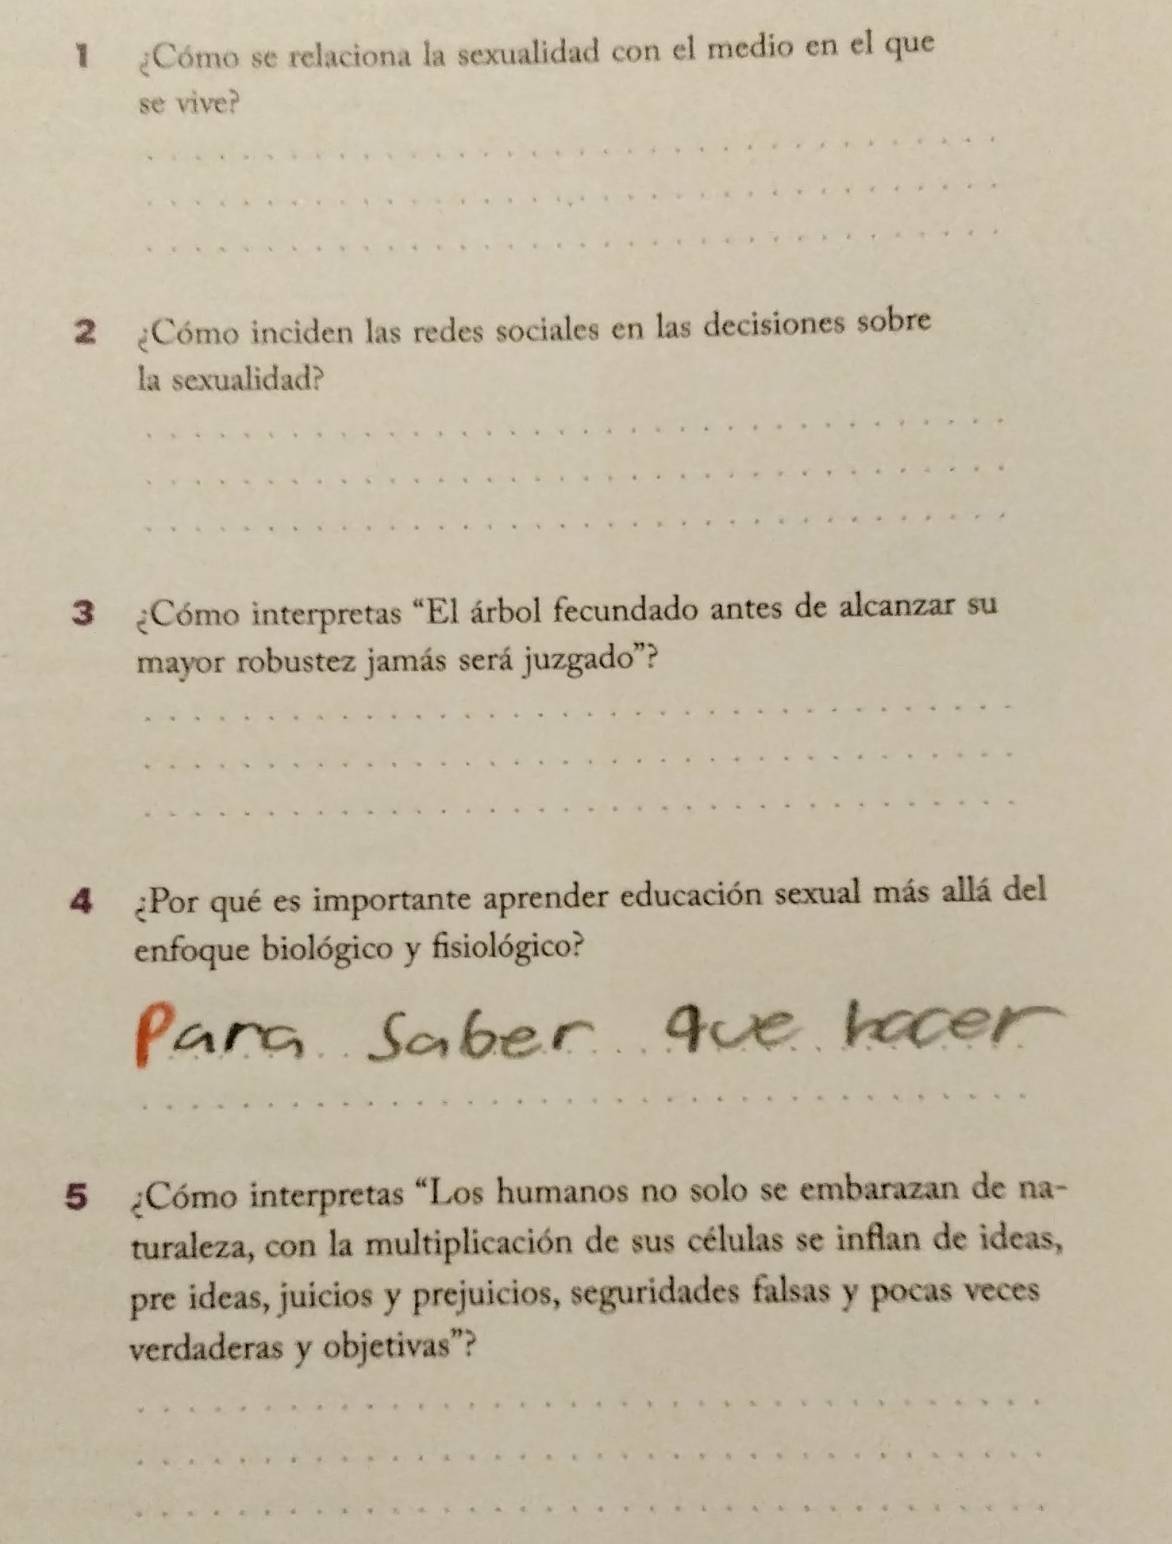 1 ¿Cómo se relaciona la sexualidad con el medio en el que
se vive?
2 ¿Cómo inciden las redes sociales en las decisiones sobre
la sexualidad?
3 ¿Cómo interpretas “El árbol fecundado antes de alcanzar su
mayor robustez jamás será juzgado”?
4 ¿Por qué es importante aprender educación sexual más allá del
enfoque biológico y fisiológico?
Para Saber que hacer
5 ¿Cómo interpretas “Los humanos no solo se embarazan de na-
turaleza, con la multiplicación de sus células se inflan de ideas,
pre ideas, juicios y prejuicios, seguridades falsas y pocas veces
verdaderas y objetivas”?